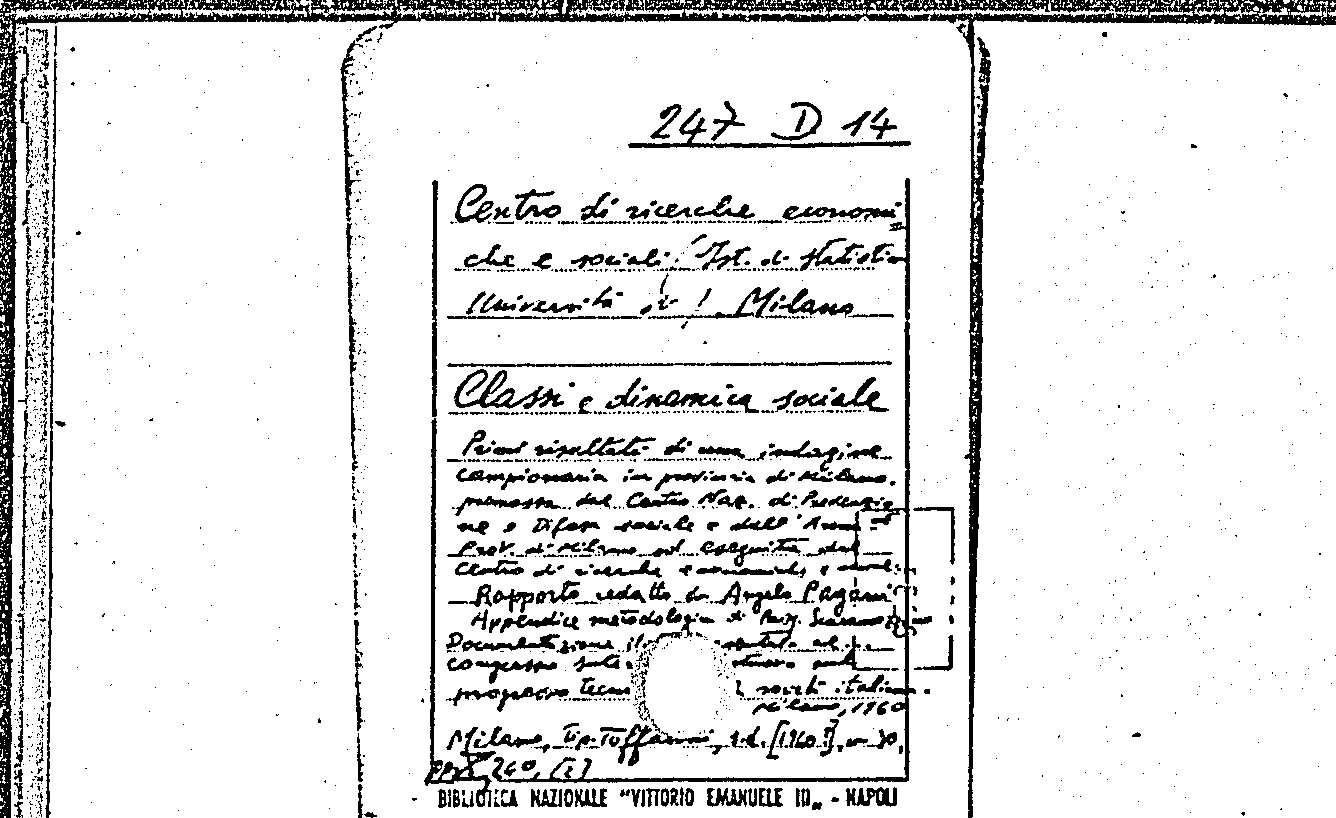 247 D 14
Centro di ricerche economi=
che e sociali. Ist. di statistica
Università di Milano
Classi e dinamica sociale
Primi risultati di una indagine
campionaria in provincia di Milano,
promossa dal Centro Naz. di Prevenzio
ne e Difesa sociale e dall'Amm=
Prov. di Milano ed eseguita dal
Centro di ricerche economiche e sociali.
Rapporto redatto da Angelo Pagani
Appendice metodologica di
Documentazione al
congresso sul
progresso società italiana.
Milano, 1960
Milano, Tip. Toffaloni, s.d. [1960?], in 30,
260,
BIBLIOTECA NAZIONALE "VITTORIO EMANUELE III„ - NAPOLI